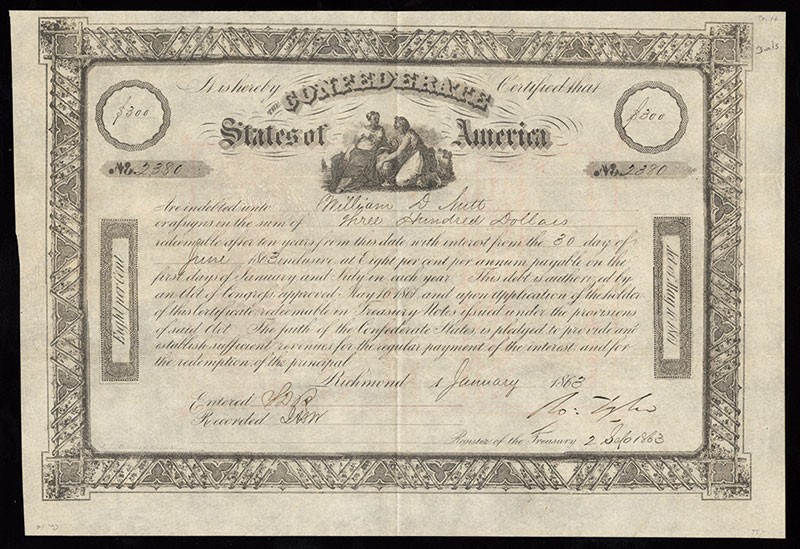 It is hereby THE CONFEDERATE Certified that
$300 $300
States of America
No. 2380 No. 2380
Are indebted unto William D.
or assigns in the sum of Three Hundred Dollars
redeemable after ten years from this date with interest from the 30 day of
June 1863 inclusive at Eight per cent per annum payable on the
first days of January and July in each year. This debt is authorized by
an Act of Congress approved May 16 1861 and upon application of the holder
of this certificate redeemable in Treasury Notes issued under the provisions
of said Act. The faith of the Confederate States is pledged to provide and
establish sufficient revenues for the regular payment of the interest and for
the redemption of the principal.
Richmond 1 January 1863
Entered
Recorded
Ro: Tyler
Register of the Treasury 2 Sep 1863
Eight per cent
Act of May 16 1861